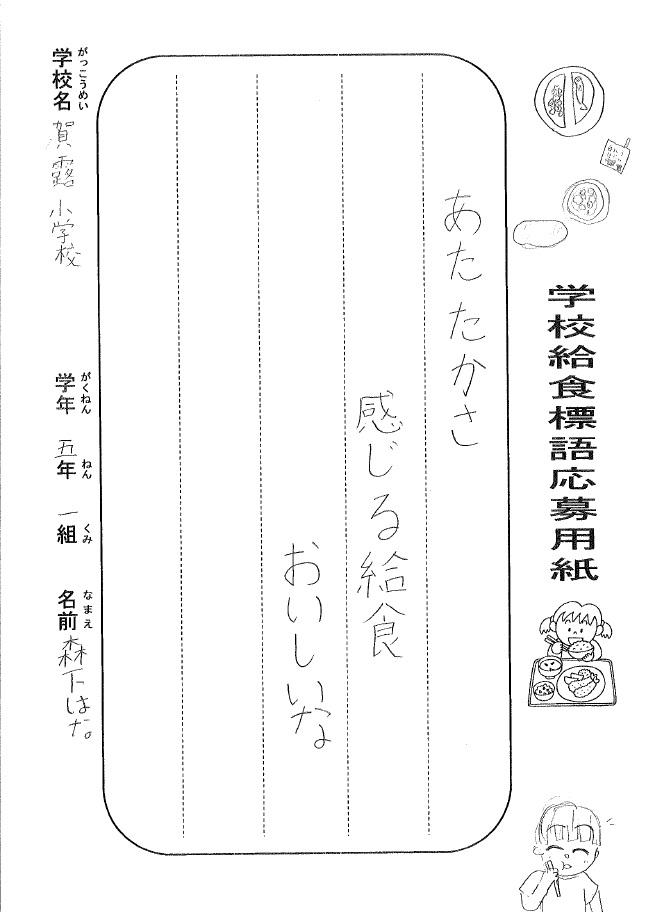 学校給食標語応募用紙
あたたかさ
感じる給食
おいしいな
学校名 賀露小学校
がっこうめい
学年 五年 一組
がくねん ねん くみ
名前 森下はな。
なまえ